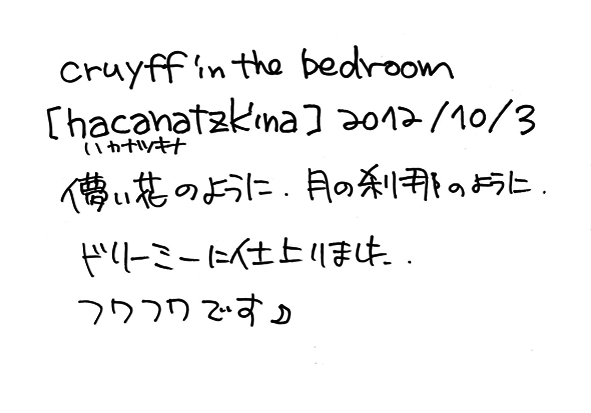 cruyff in the bedroom
[hacanatzkina] 2012/10/3
ハカナツキナ
儚い花のように. 月の刹那のように.
ドリーミーに仕上りました.
フワフワです♪